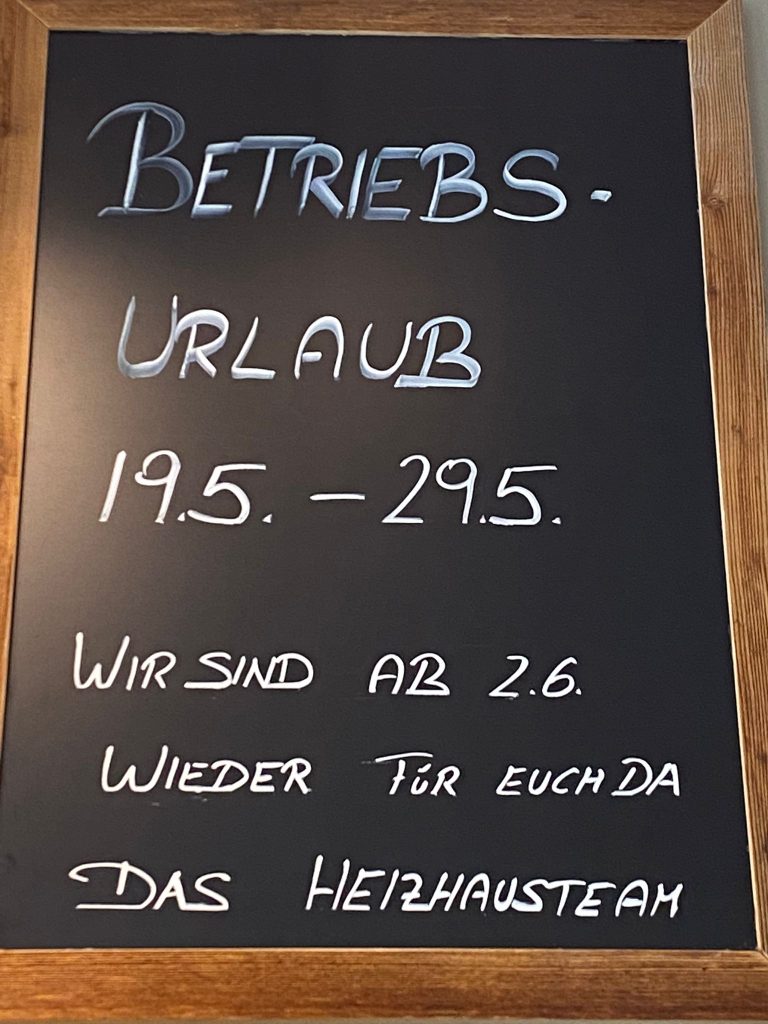 BETRIEBS-
URLAUB
19.5. – 29.5.
WIR SIND AB 2.6.
WIEDER FÜR EUCH DA
DAS HEIZHAUSTEAM